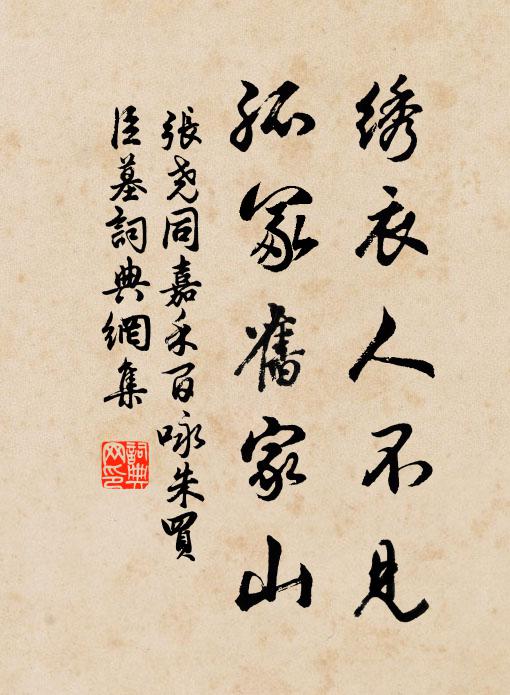 綉衣人不見
孤冢舊家山
張堯同嘉禾百咏朱買
臣墓詞典網集
詞典
网印